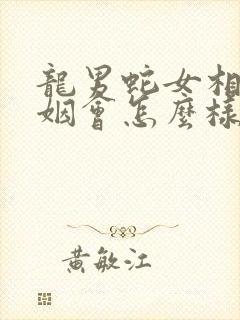 龍男蛇女相
姻會怎麼樣
黃敏江